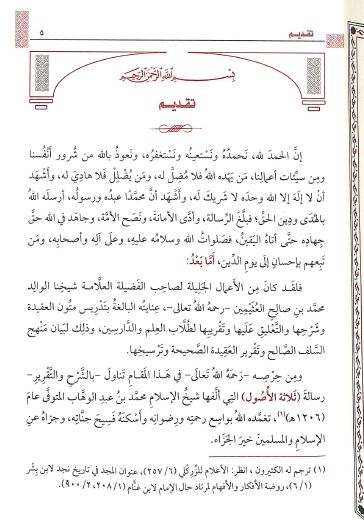 تقديم ٥
بِسْمِ اللهِ الرَّحْمَنِ الرَّحِيمِ
تقديم
إنَّ الحمدَ لله، نَحمدُهُ ونَستعينُه ونَستغفرُه، ونَعوذُ بالله من شُرورِ أنْفُسنا
ومن سيِّئات أعمالنا، مَن يَهده اللهُ فلا مُضلَّ له، ومَن يُضْلِلْ فلا هاديَ له، وأشْهَد
أنْ لا إله إلا الله وحدَه لا شريكَ له، وأشْهَد أنَّ محمَّدًا عبدُه ورسولُه، أرسلَه اللهُ
بالهُدَى ودِينِ الحقِّ؛ فبلَّغَ الرِّسالةَ، وأدَّى الأمانةَ، ونَصحَ الأمَّةَ، وجاهدَ في الله حقَّ
جِهادِه حتَّى أتاهُ اليَقينُ، فصَلواتُ الله وسلامُه عليه، وعلَى آلِه وأصحابِه، ومَن
تَبِعهم بإحسانٍ إلى يومِ الدِّين، أمَّا بَعْدُ:
فلقَد كانَ مِن الأعمالِ الجَليلة لصاحِبِ الفَضيلة العلَّامة شَيخِنا الوالِد
محمَّد بنِ صالِحٍ العُثَيْمِين -رحمهُ اللهُ تعالَى-، عِنايتُه البالغةُ بتَدْريس مُتُون العقيدة
وشَرْحِها والتَّعْليق عليها وتَقْريبِها لطُلَّاب العِلم والدَّارسين، وذلك لبَيان مَنهَج
السَّلَف الصَّالح وتَقْرير العَقيدة الصَّحيحة وتَرْسيخِها.
ومِن حِرْصِه -رَحمَهُ اللهُ تَعالَى- في هذا المقَام تَناوَل -بالشَّرْحِ والتَّقْرير-
رسالةَ (ثَلاثة الأُصُول) التي ألَّفها شيخُ الإسلام محمَّد بنُ عبدِ الوهَّاب المتوفَّى عامَ
(١٢٠٦هـ)(١)، تَغمَّده اللهُ بواسِع رحمتِه ورِضوانِه وأسْكنَهُ فَسِيحَ جنَّاتِه، وجزاهُ عنِ
الإسلامِ والمسلمينَ خيرَ الجزَاء.
(١) ترجم له الكثيرون، انظر: الأعلام للزركلي (٦/ ٢٥٧)، عنوان المجد في تاريخ نجد لابن بشر
(١/ ٦)، روضة الأفكار والأفهام لمرتاد حال الإمام لابن غنام (١/ ٢٠٨، ٢/ ٩٠٠).